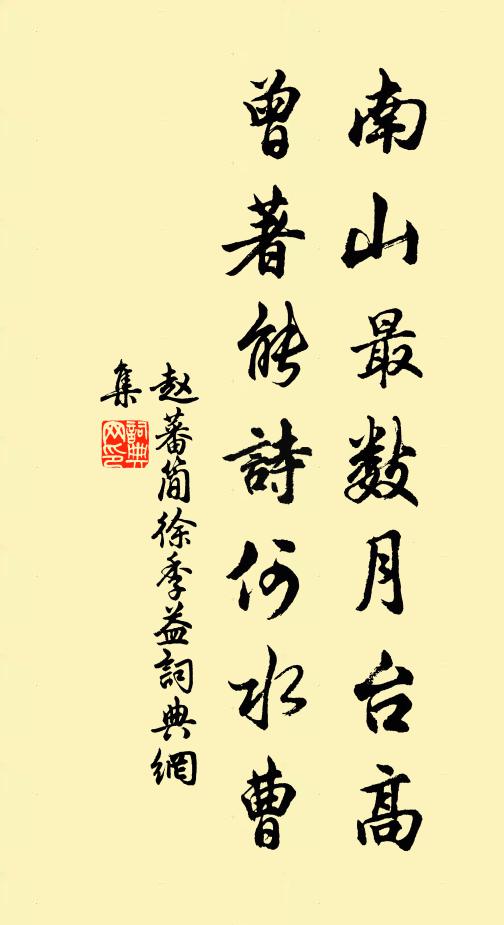 南山最数月台高
曾著能詩何水曹
赵蕃简徐季益詞典網
集
詞典網印